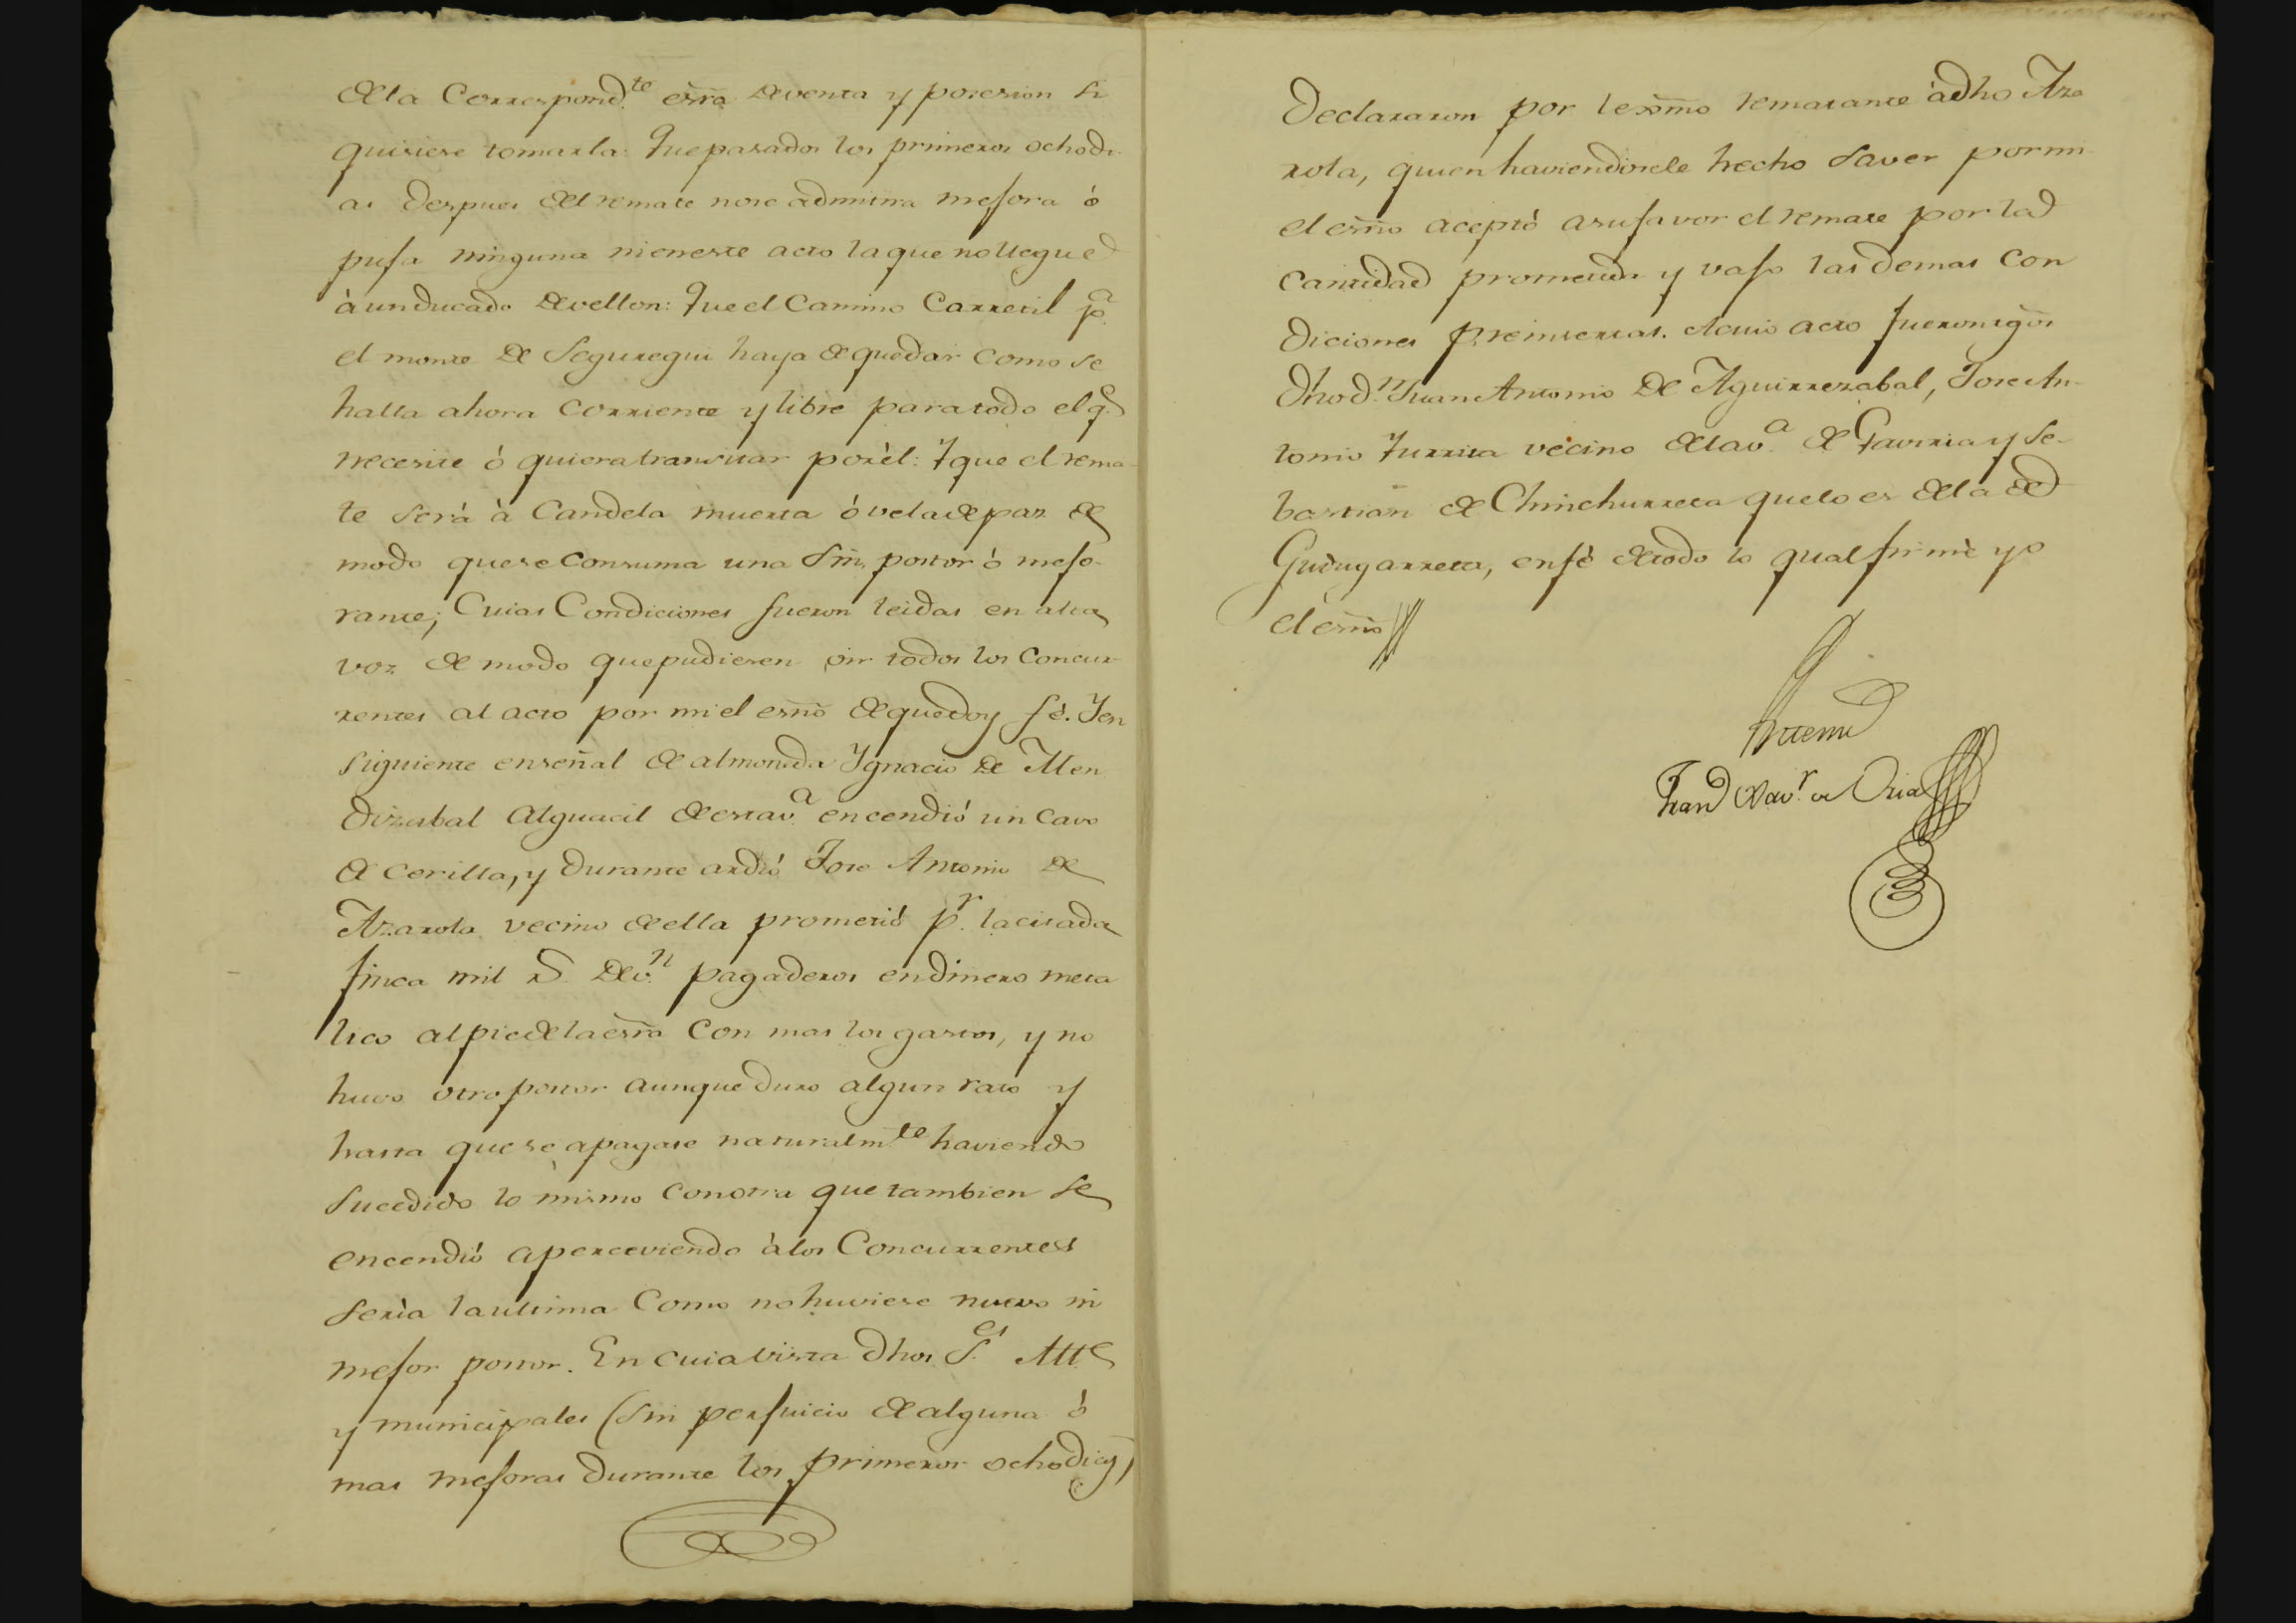 de la Correspond.te esrã de venta y posesion si
quisiese tomarla: Que pasados los primeros ocho di-
as despues del remate no se admitira mejora ó
puja ninguna ni en este acto la que no llegue
à un ducado de vellon: Que el Camino Carretil p.a
el monte de Seguregui haya de quedar como se
halla ahora corriente y libre para todo el q.e
necesite ó quiera transitar por èl: Y que el rema-
te será à Candela muerta ó vela de paz de
modo que se consuma una sin postor ó mejo-
rante; Cuias Condiciones fueron leidas en alta
voz de modo que pudiesen oir todos los concur-
rentes al acto por mi el esnõ de que doy fé. Y en
siguiente en señal de almoneda Ygnacio de Men
dizabal Alguacil de esta v.a encendió un cavo
de cerilla, y durante ardió Jose Antonio de
Azarola vecino de ella prometió p.r la citada
finca mil r.s de v.n pagaderos en dinero meta
lico al pie de la esrã con mas los gastos, y no
huvo otro postor aunque duro algun rato y
hasta que se apagase naturalm.te haviendo
sucedido lo mismo con otra que tambien se
encendió aperceviendo à los Concurrentes
serìa la ultima como no huviese nuevo ni
mejor postor. En cuia vista dhos S.es Alc.e
y municipales (sin perjuicio de alguna ó
mas mejoras durante los primeros ocho dias)
Declararon por lexmõ rematante à dho Aza
rola, quien haviendosele hecho saver por mi
el esnõ aceptó a su favor el remate por la
cantidad prometida y vajo las demas con
diciones preinsertas. A cuio acto fueron tgõs
dho d.n Juan Antonio de Aguirrezabal, Jose An-
tonio Yurrita vecino de la v.a de Gaviria y Se-
bastian de Chinchurreta que lo es de la de
Gudugarreta, en fè de todo lo qual firmè yo
el esnõ
Ante mi
Fran.co Xav.r de Oria